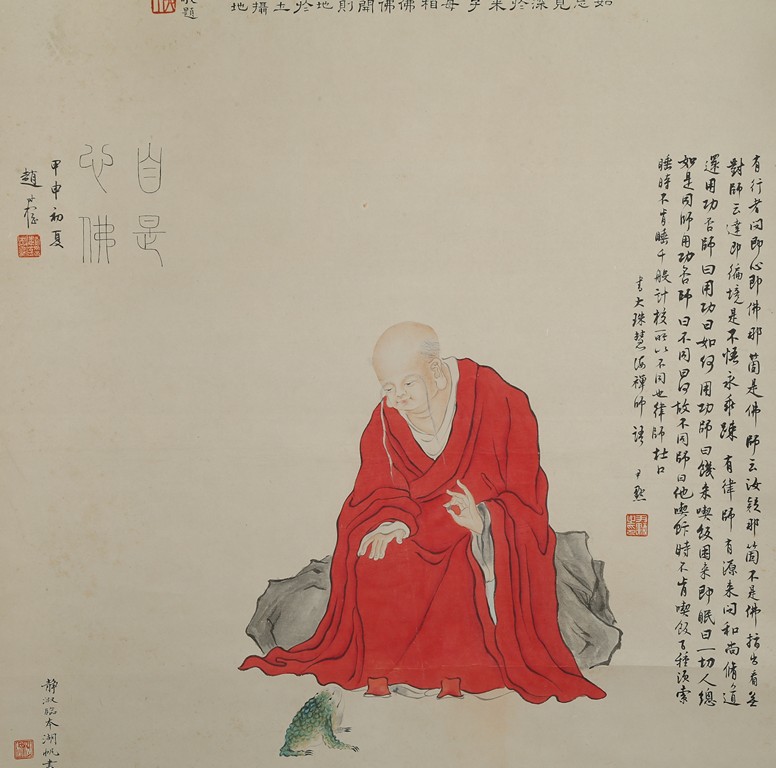 見
深
於
來
子
母
相
佛
佛
開
則
地
於
土
攝
地
題
有行者問即心即佛那箇是佛師云汝疑那箇不是佛指出看無
對師云達即徧境是不悟永乖踈 有律師有源來問和尚脩道
還用功否師曰用功曰如何用功師曰饑來喫飯困來即眠曰一切人總
如是同師用功否師曰不同曰何故不同師曰他喫飯時不肯喫飯百種須索
睡時不肯睡千般計校所以不同也律師杜口
書大珠慧海禪師語 尹默
自是
心佛
甲申初夏
趙
靜淑臨本湖帆書